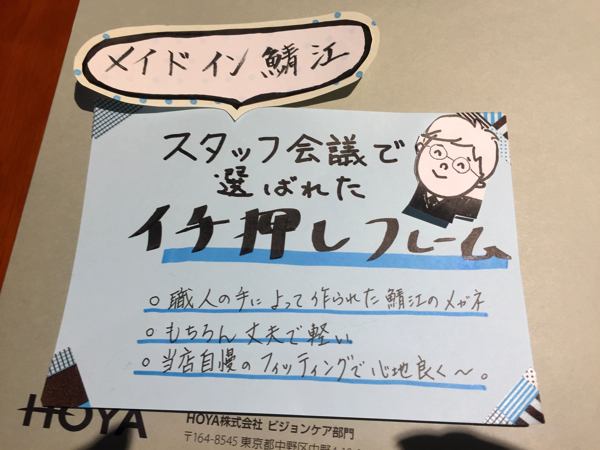 メイドイン鯖江
スタッフ会議で
選ばれた
イチ押しフレーム
○ 職人の手によって作られた鯖江のメガネ
○ もちろん丈夫で軽い
○ 当店自慢のフィッティングで心地良く〜。
HOYA
HOYA株式会社 ビジョンケア部門
〒164-8545 東京都中野区中野